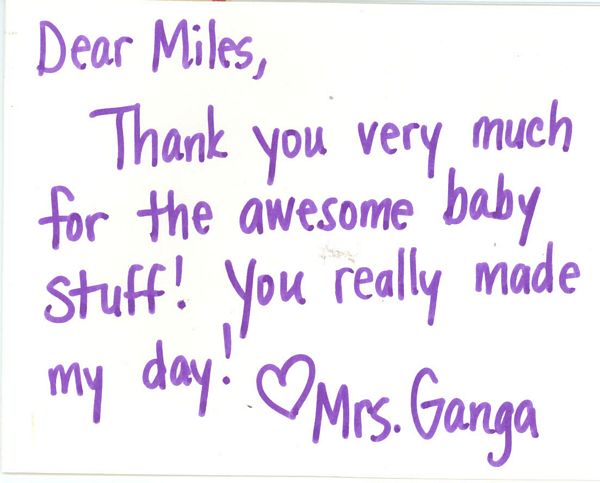 Dear Miles,
Thank you very much
for the awesome baby
stuff! You really made
my day! ♡ Mrs. Ganga